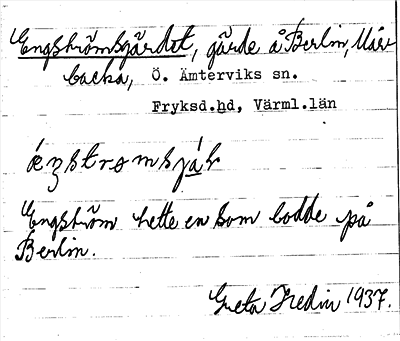 Engströmsgärdet, gärde å Berlin, Mår-
backa, Ö. Ämterviks sn.
Fryksd.hd, Värml.län
Engström hette en som bodde på
Berlin.
Greta Hedin 1937.